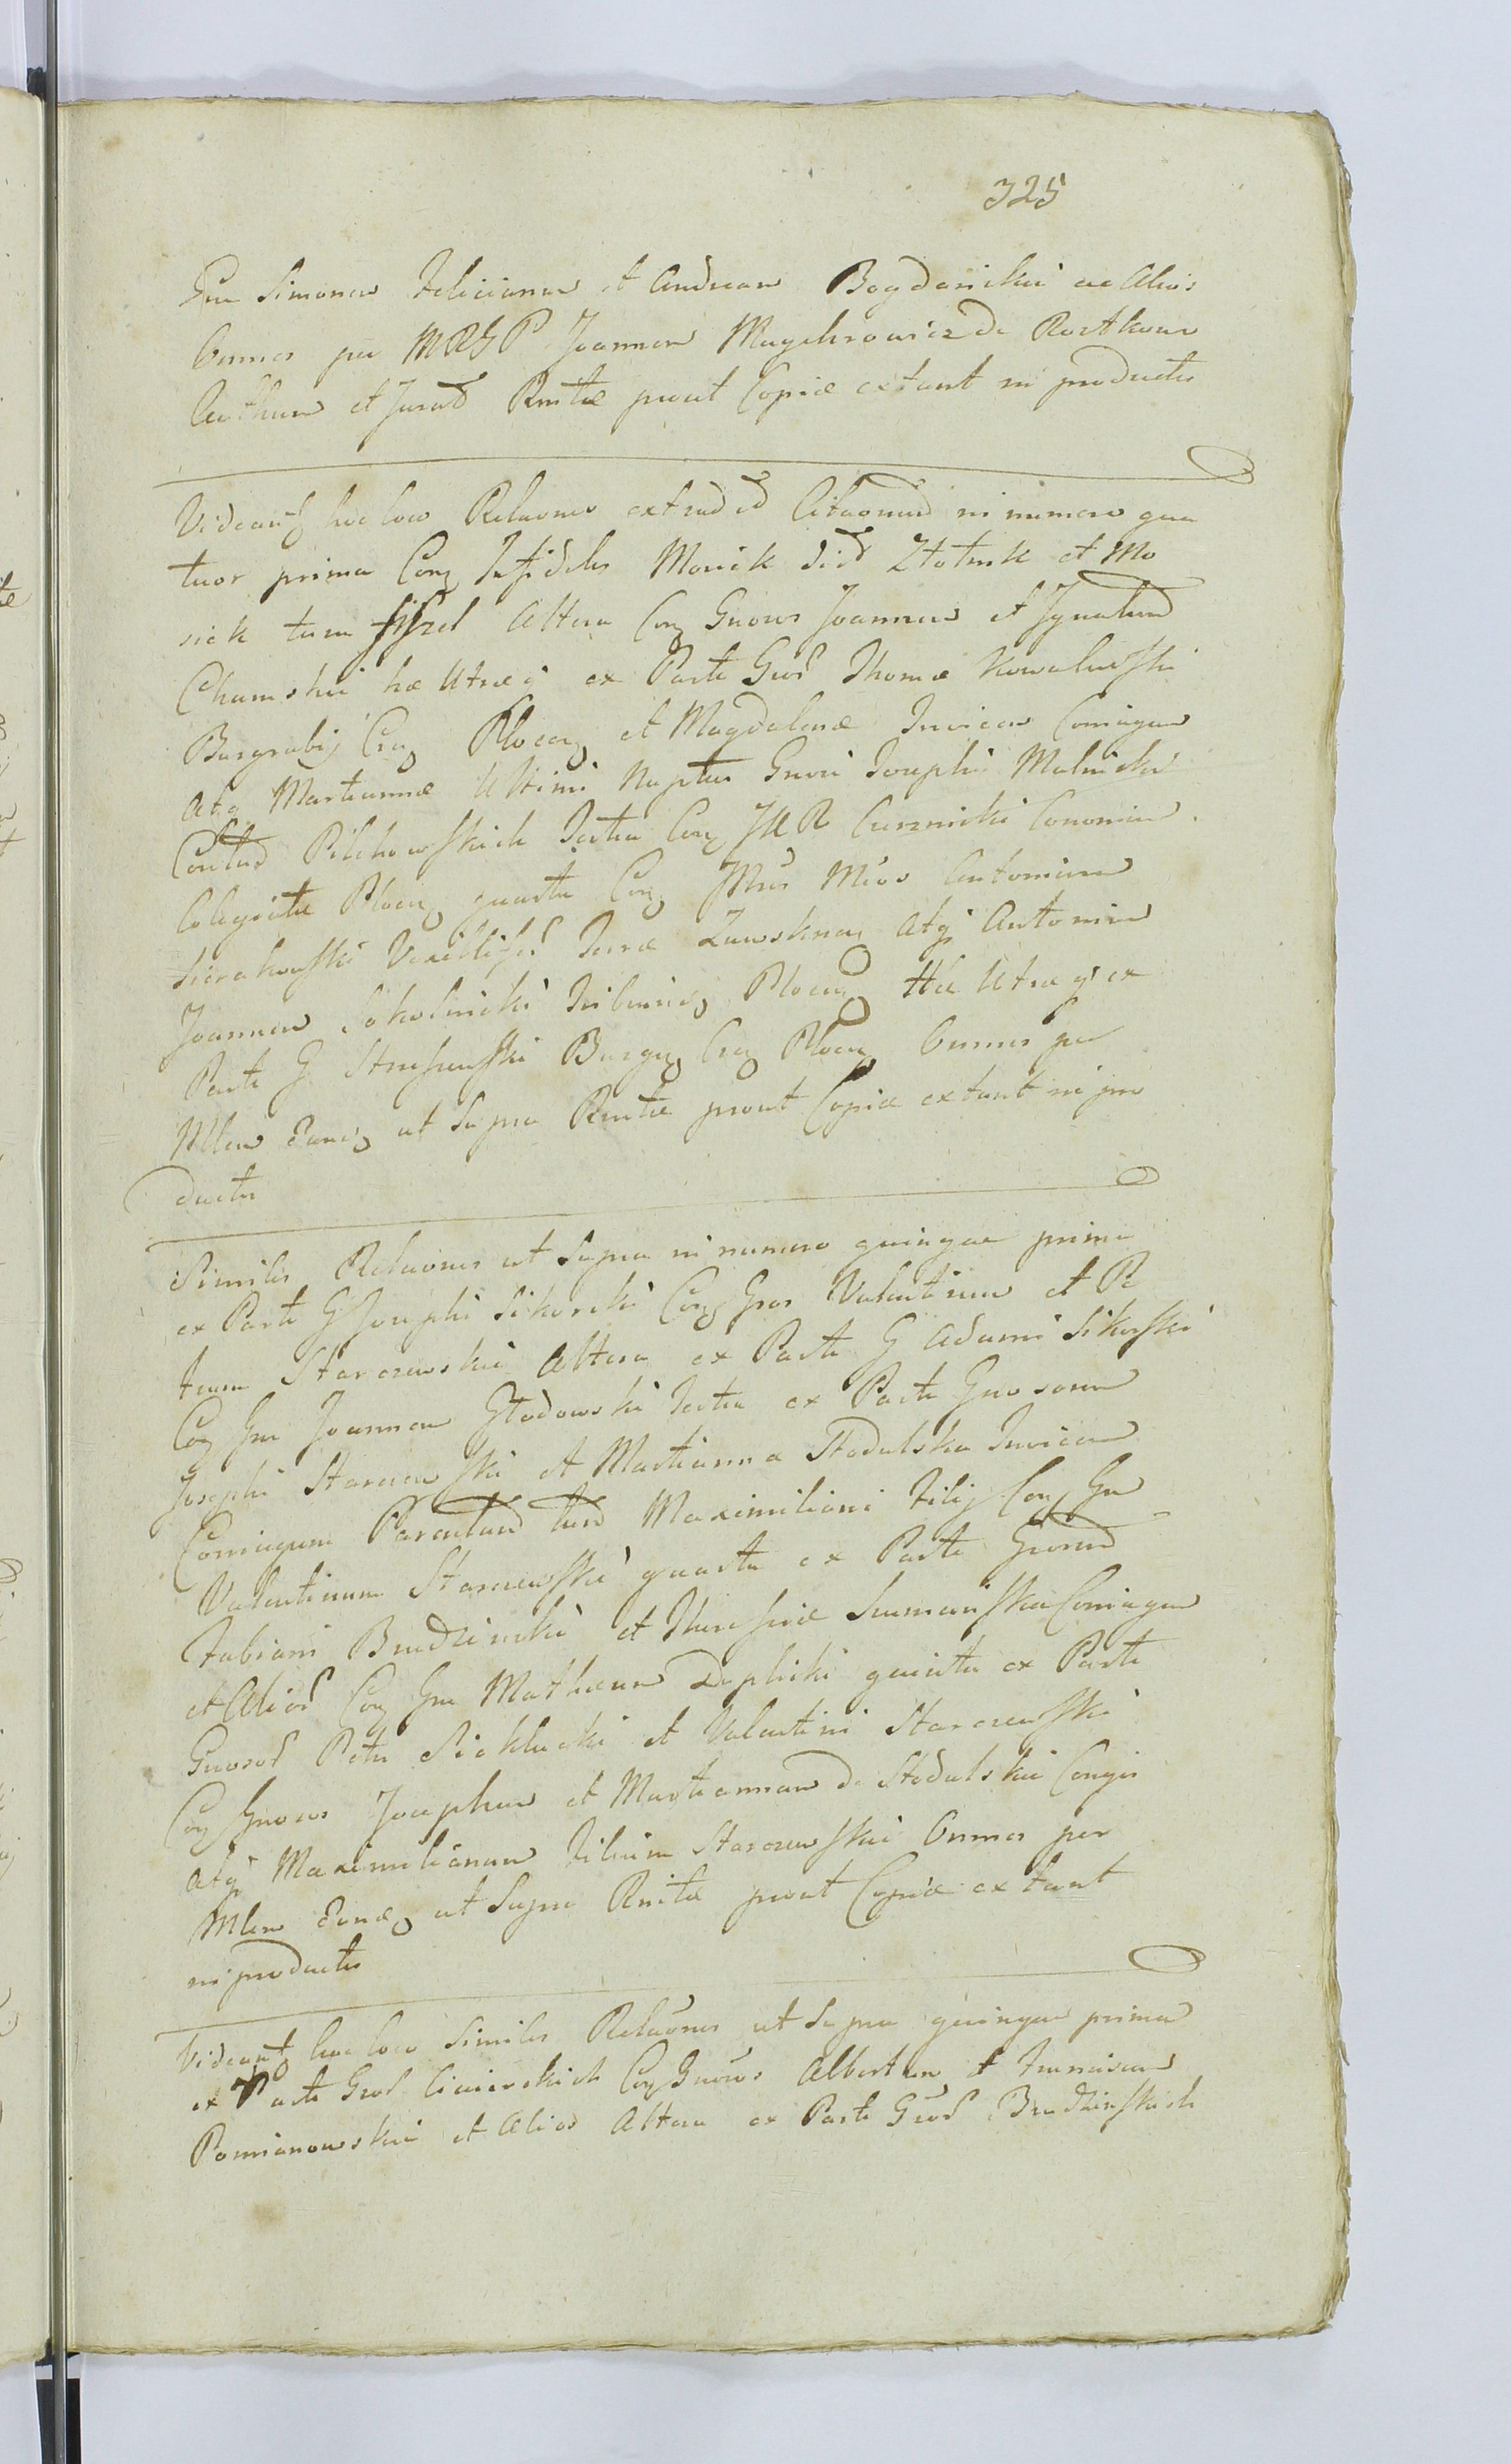 325
Gm Simonem Felicianum et Andream Bogdanskie ac Alios
Omnes per MRGP Joannem Maychrowicz de Rostkowo
Authum et Jurat Rnitæ prout Copiæ extant in productis
Videant hocloco Relaones extrad Citaonum in numero qua
tuor prima Con Infideles Morick Sid Złotnik et Mo
siek tum Altera Con Gnosos Joannem et Ignatium
Chamskie hæ Utræq ex Parte Gnos Thomæ Kowalewski
Burgrabij Cren Plocen et Magdalenæ Invicem Coniugum
Atq Martiannæ Ultimi Nuptus Gnosi Josephi Malnicki
Pilichowskich Tertia Con JAR Curznicki Canonicum
Colegiatæ Plocen quarta Con Mcos Antonium
Sierakowski Vexillif Terræ Zawsknen Atq Antonium
Joannem Sokolnicki Tribunid Plocen Hæ Utræq ex
Parte G Strusewski Burgr Cren Plocen Omnes per
Mlem Eund ut Supra Rnitæ prout Copiæ extant in pro
ductis
Similes Relaones ut Supra in numero quinque prima
ex Parte G Josephi Sikorski Con Gnos Valentinum et Pe
trum Starozewskie Altera ex Parte G Adami Sikorski
Con Gm Joannem Głodowski Tertia ex Parte Gnosorum
Josephi Starczewski et Martianna Stodulska Invicem
Coniugum Parentum tum Maximiliani Filij Con Gm
Valentinum Starczewski quarta ex Parte Gnosrum
Fabiani Brudzinski et Theressiæ Szumanska Coniugum
et Alior Con Gm Mathæum Deplicki quinta ex Parte
Gnosor Petri Sieklucki et Valentini Starozewski
Con Gnosos Josephum et Martiannam de Stodulskie Conges
atq Maximilianum Filium Starozewskie Omnes per
Mlem Eund ut Supra Rnitæ prout Copiæ extant
in productis
Videant hocloco Similes Relaones ut Supra quinque prima
ex Parte Gnos Cicierskich Con Gnosos Albertum et Franciscum
Pomianowskie et Alios Altera ex Parte Gnos Brudzinskich